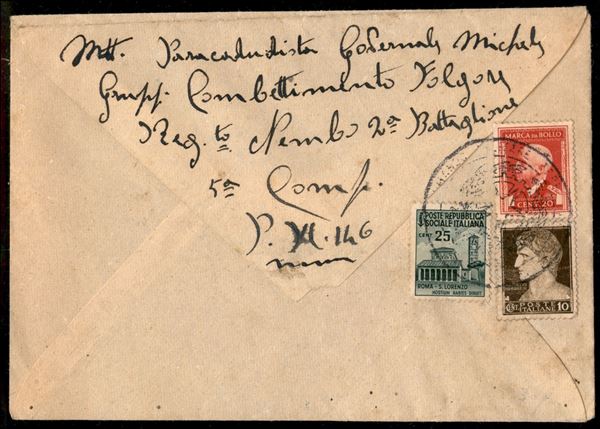 Mtt. Paracadudista Gofernals Michels
Grupp. Combettimento Folgore
Reg.to Nembo 2a Battaglione
5a Comp.
P. M. 146
MARCA DA BOLLO
CENT. 20
POSTE REPUBBLICA
SOCIALE ITALIANA
CENT 25
ROMA - S. LORENZO
HOSTIUM RABIES DIRUIT
POSTE
ITALIANE
CENT. 10